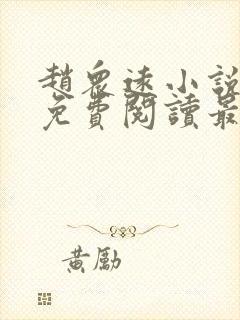 趙眾遠小說
免費閱讀最
黃勵